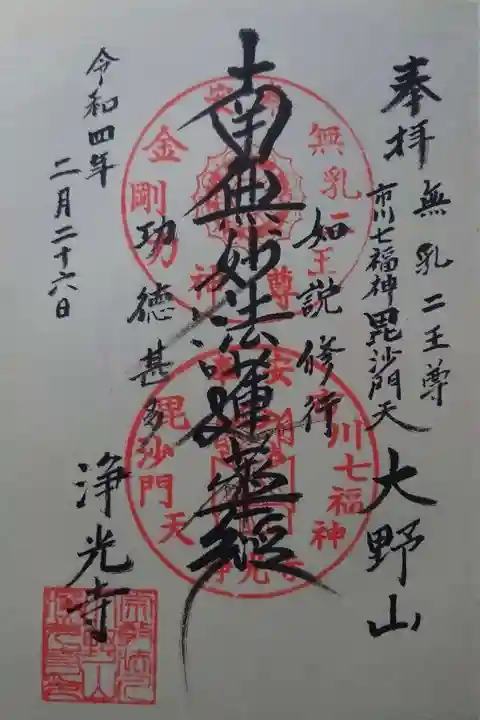 奉拝
無乳二王尊
市川七福神毘沙門天
大野山
如説修行
南無妙法蓮華経
功徳甚多
令和四年
二月二十六日
浄光寺
無乳二王尊
金剛力神
川七福神
毘沙門天